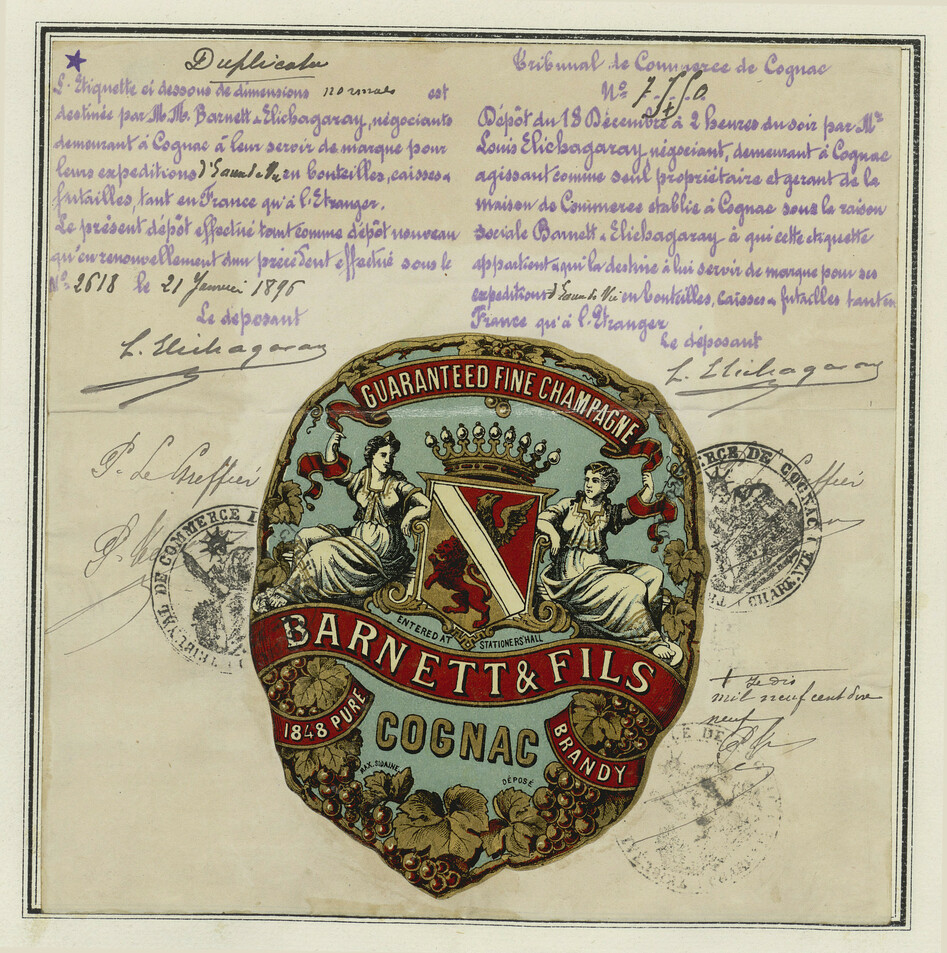 Duplicata
L'Etiquette ci dessous de dimensions normales est
destinée par M.M. Barnett & Elichagaray, négociants
demeurant à Cognac à leur servir de marque pour
leurs expeditions d'Eaux de Vie en bouteilles, caisses &
futailles, tant en France qu'à l'Etranger.
Le présent dépôt effectué tout comme dépôt nouveau
qu'en renouvellement d'un précédent effectué sous le
N° 2618 le 21 Janvier 1896
Le déposant
L. Elichagaray
P. Le Greffier
Tribunal de Commerce de Cognac
N°
Dépôt du 18 Décembre à 2 heures du soir par Mr
Louis Elichagaray, négociant, demeurant à Cognac
agissant comme seul propriétaire et gerant de la
maison de Commerce etablie à Cognac sous la raison
sociale Barnett & Elichagaray à qui cette etiquette
appartient & qui la destine à lui servir de marque pour ses
expeditions d'Eaux de Vie en bouteilles, caisses & futailles tant en
France qu'à l'Etranger
Le déposant
L. Elichagaray
GUARANTEED FINE CHAMPAGNE
ENTERED AT STATIONERS' HALL
BARNETT & FILS
1848 PURE
COGNAC
BRANDY
DÉPOSÉ
DE COMMERCE
TRIB
ERCE DE COGNAC
CHARENTE
+ Je dis
mil neuf cent dix
neuf